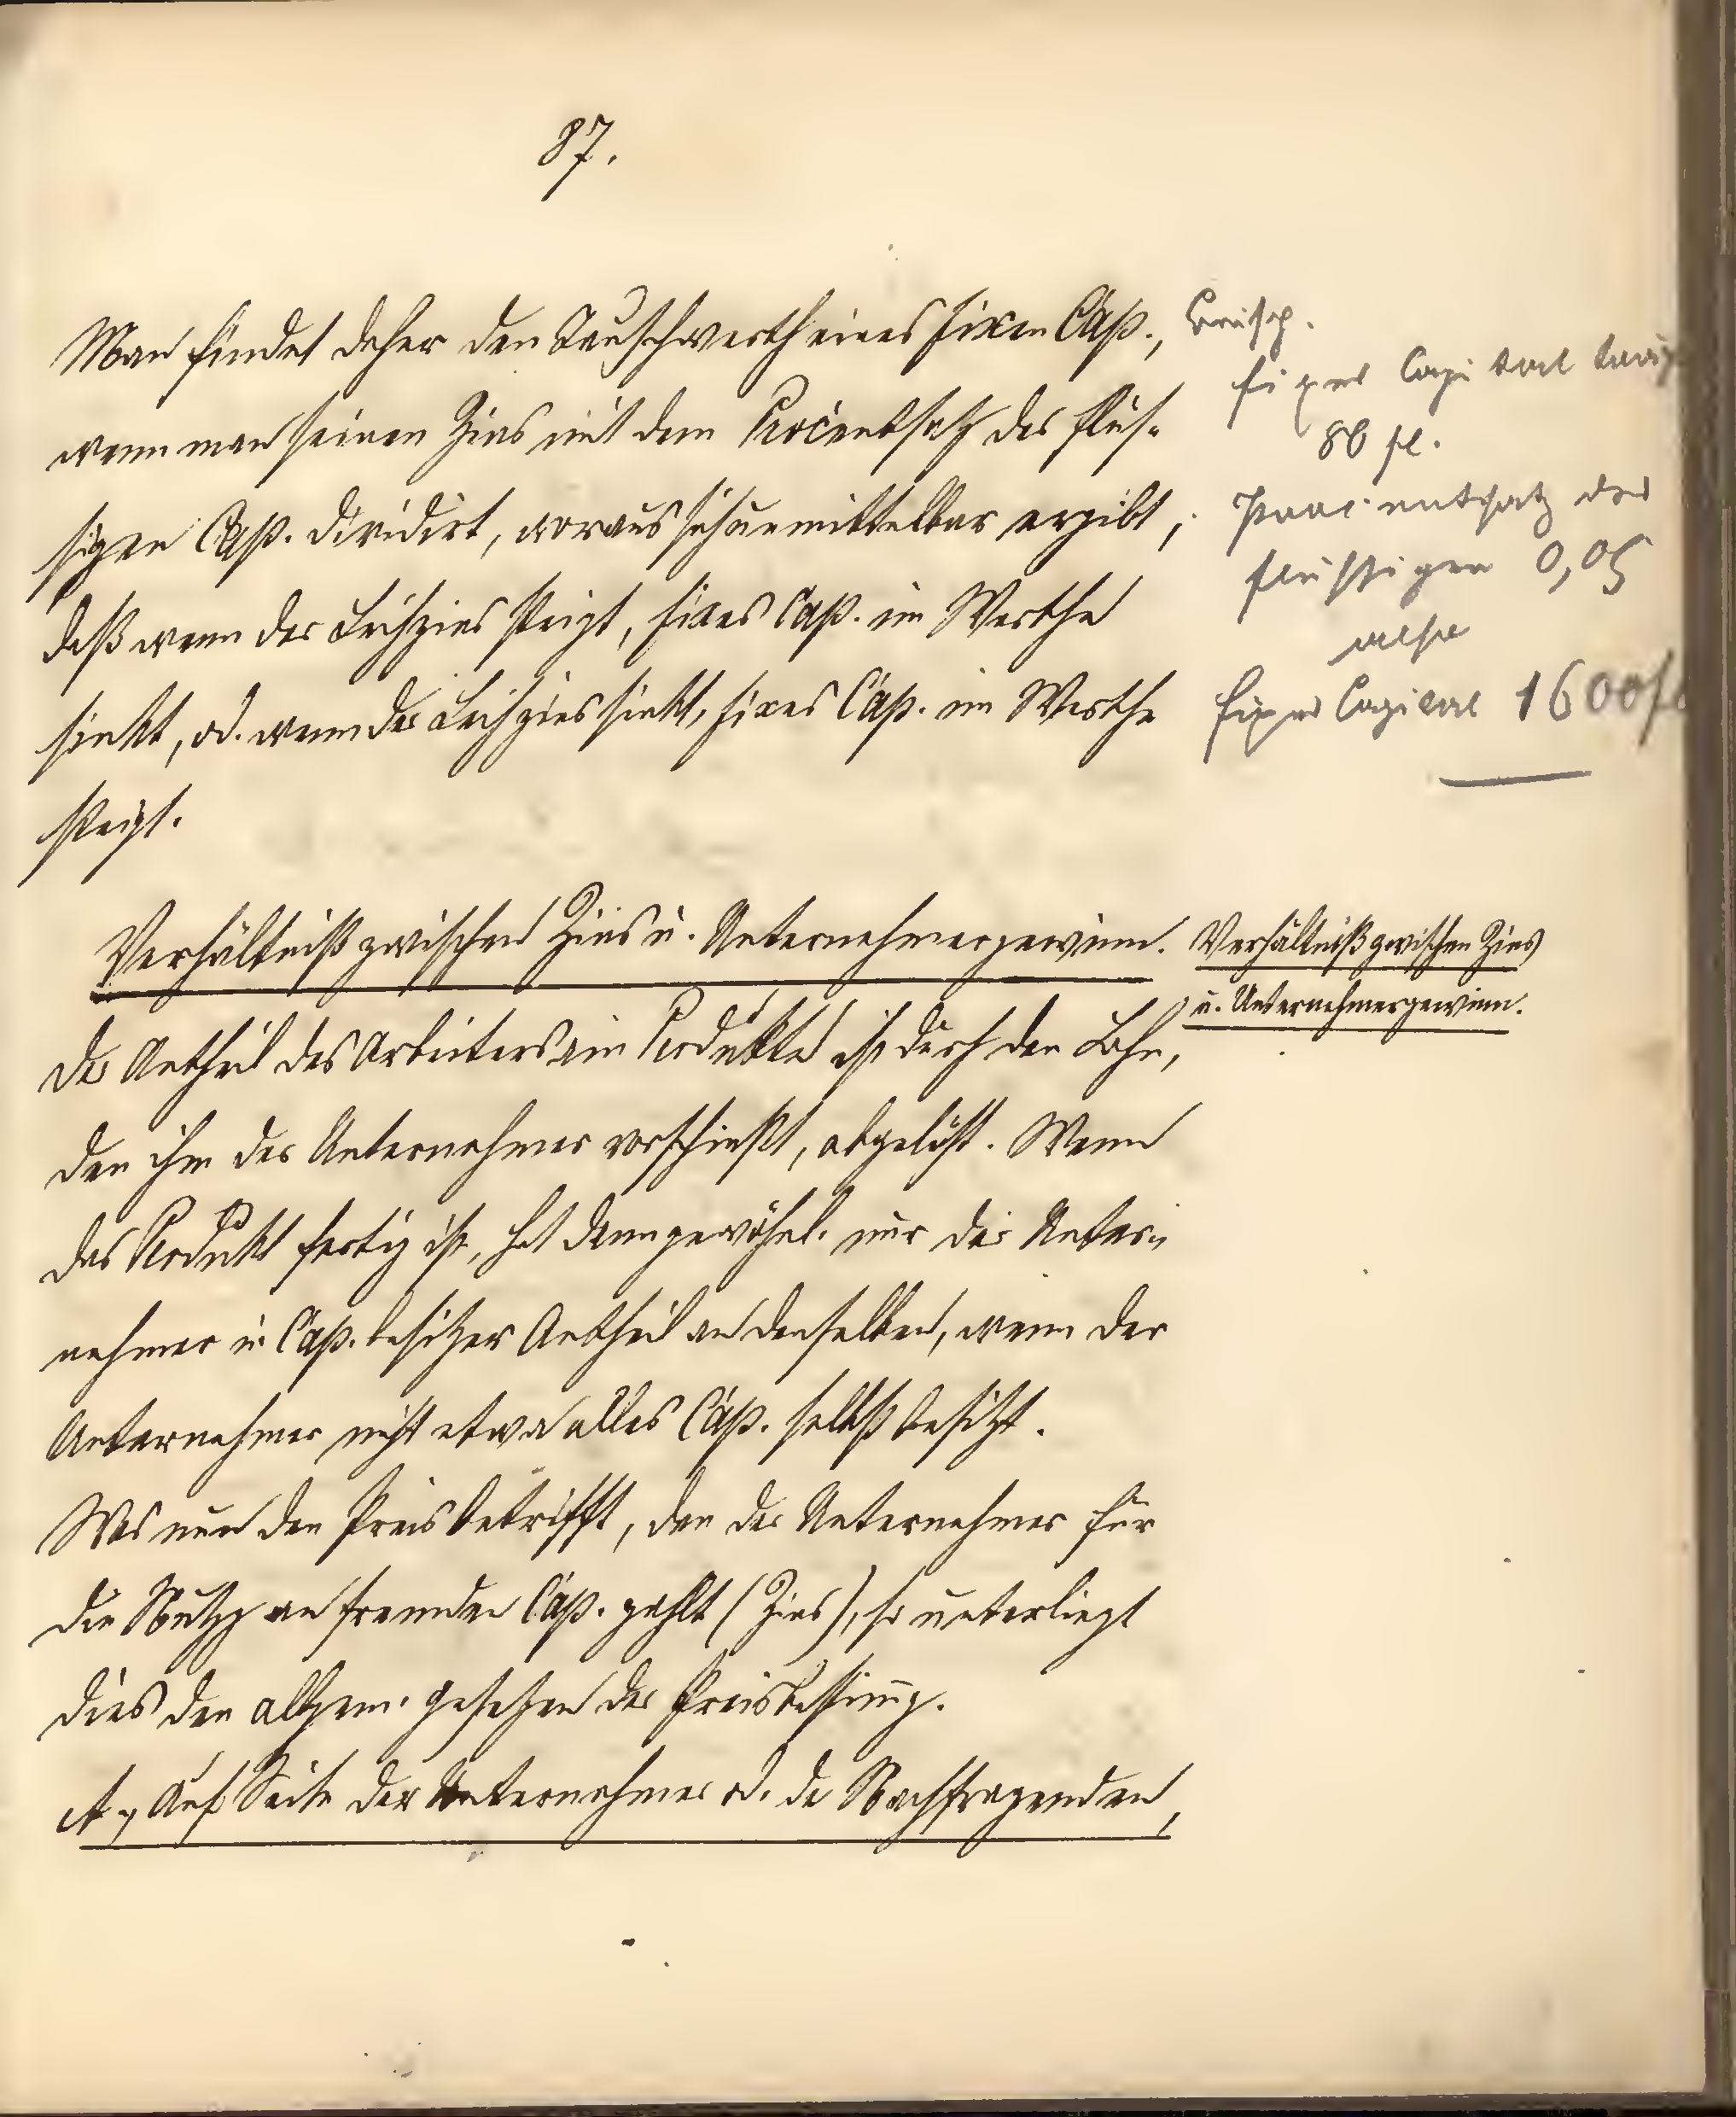 87.
Man findet daher den Tauschwerth eines fixen Cap.,
wenn man seinen Zins mit dem Procentsatz des flüs-
sigen Cap. dividirt, woraus sich unmittelbar ergibt,
daß wenn der Leihzins steigt, fixes Cap. im Werthe
sinkt, od. wenn der Leihzins sinkt, fixes Cap. im Werthe
steigt.
Beisp.
fixes Capital
80 fl.
Procentsatz des
flüssigen 0,05
also
fixes Capital 1600 fl
Verhältniß zwischen Zins u. Unternehmergewinn.
Verhältniß zwischen Zins
u. Unternehmergewinn.
Der Antheil des Arbeiters am Produkte ist durch den Lohn,
den ihm der Unternehmer vorschießt, abgelöst. Wenn
das Produkt fertig ist, hat dann gewöhnl. nur der Unter-
nehmer u. Cap.besitzer Antheil an denselben, wenn der
Unternehmer nicht etwa alles Cap. selbst besitzt.
Was nun den Preis betrifft, den der Unternehmer für
die Nutzg an fremden Cap. zahlt (Zins), so unterliegt
dies den allgem. Gesetzen der Preisbestimg.
A, Auf Seite der Unternehmer od. der Nachfragenden,